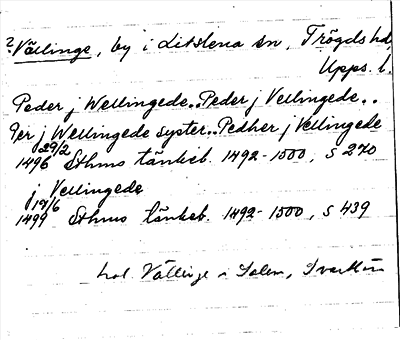 ? Vällinge, by i Litslena sn, Trögds hd,
Upps. l.
Peder j Wellingede.. Peder j Vellingede..
Per j Wellingede syster.. Pedher j Vellingede
29/2
1496 Sthms tänkeb. 1492-1500, s 270
j Vellingede
17/6
1499 Sthms tänkeb. 1492-1500, s 439
Vällinge i Salem,